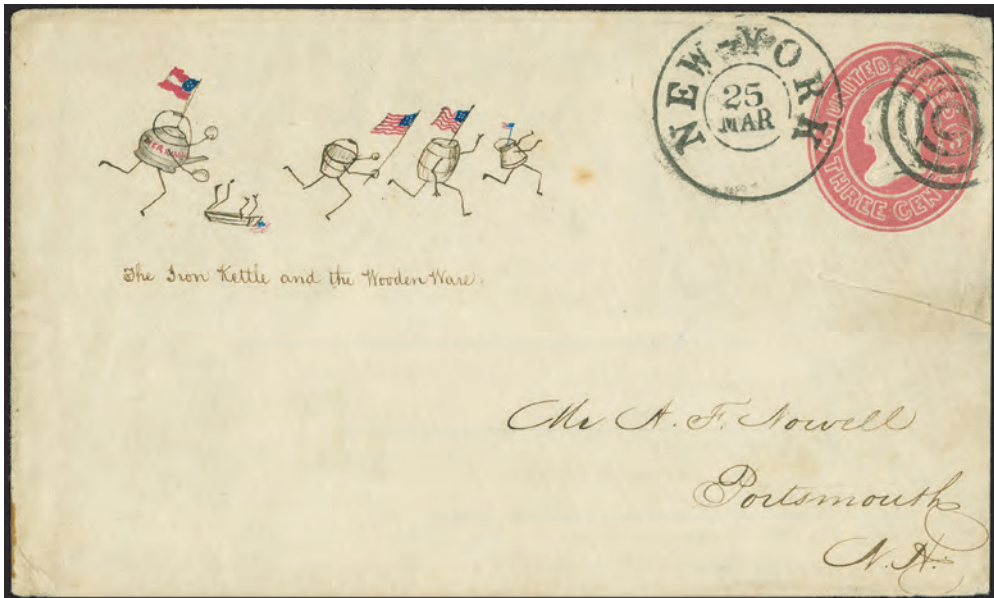 NEW-YORK
25
MAR
UNITED STATES
THREE CENTS
The Iron Kettle and the Wooden Ware.
Mr A. F. Nowell
Portsmouth
N.H.